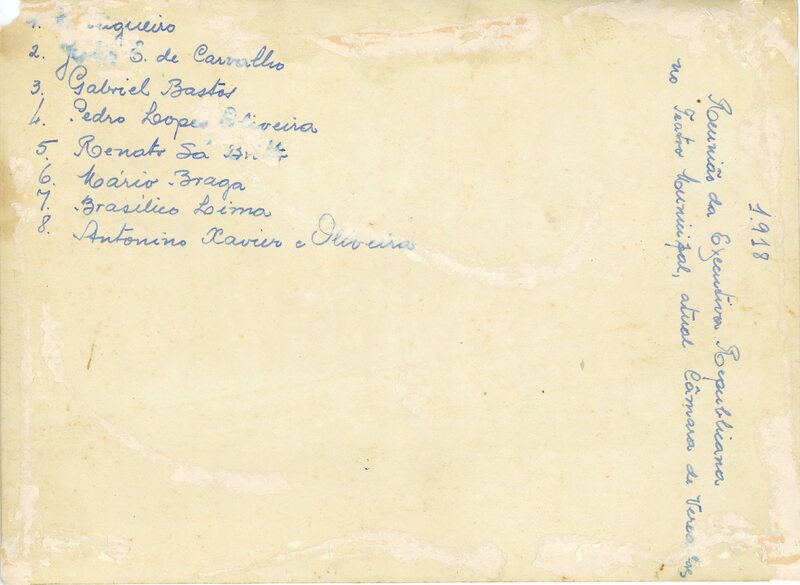 1.
2. S. de Carvalho
3. Gabriel Bastos
4. Pedro Lopes Oliveira
5. Renato Sá Britto
6. Mário Braga
7. Brasílico Lima
8. Antonino Xavier e Oliveira
1.918
Reunião da Executiva Republicana
no Teatro Municipal, atual Câmara de